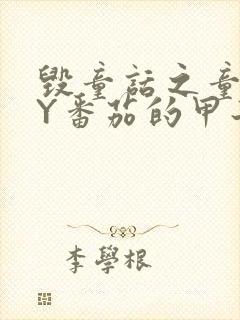 毁童話之童
Y番茄的甲
李學根